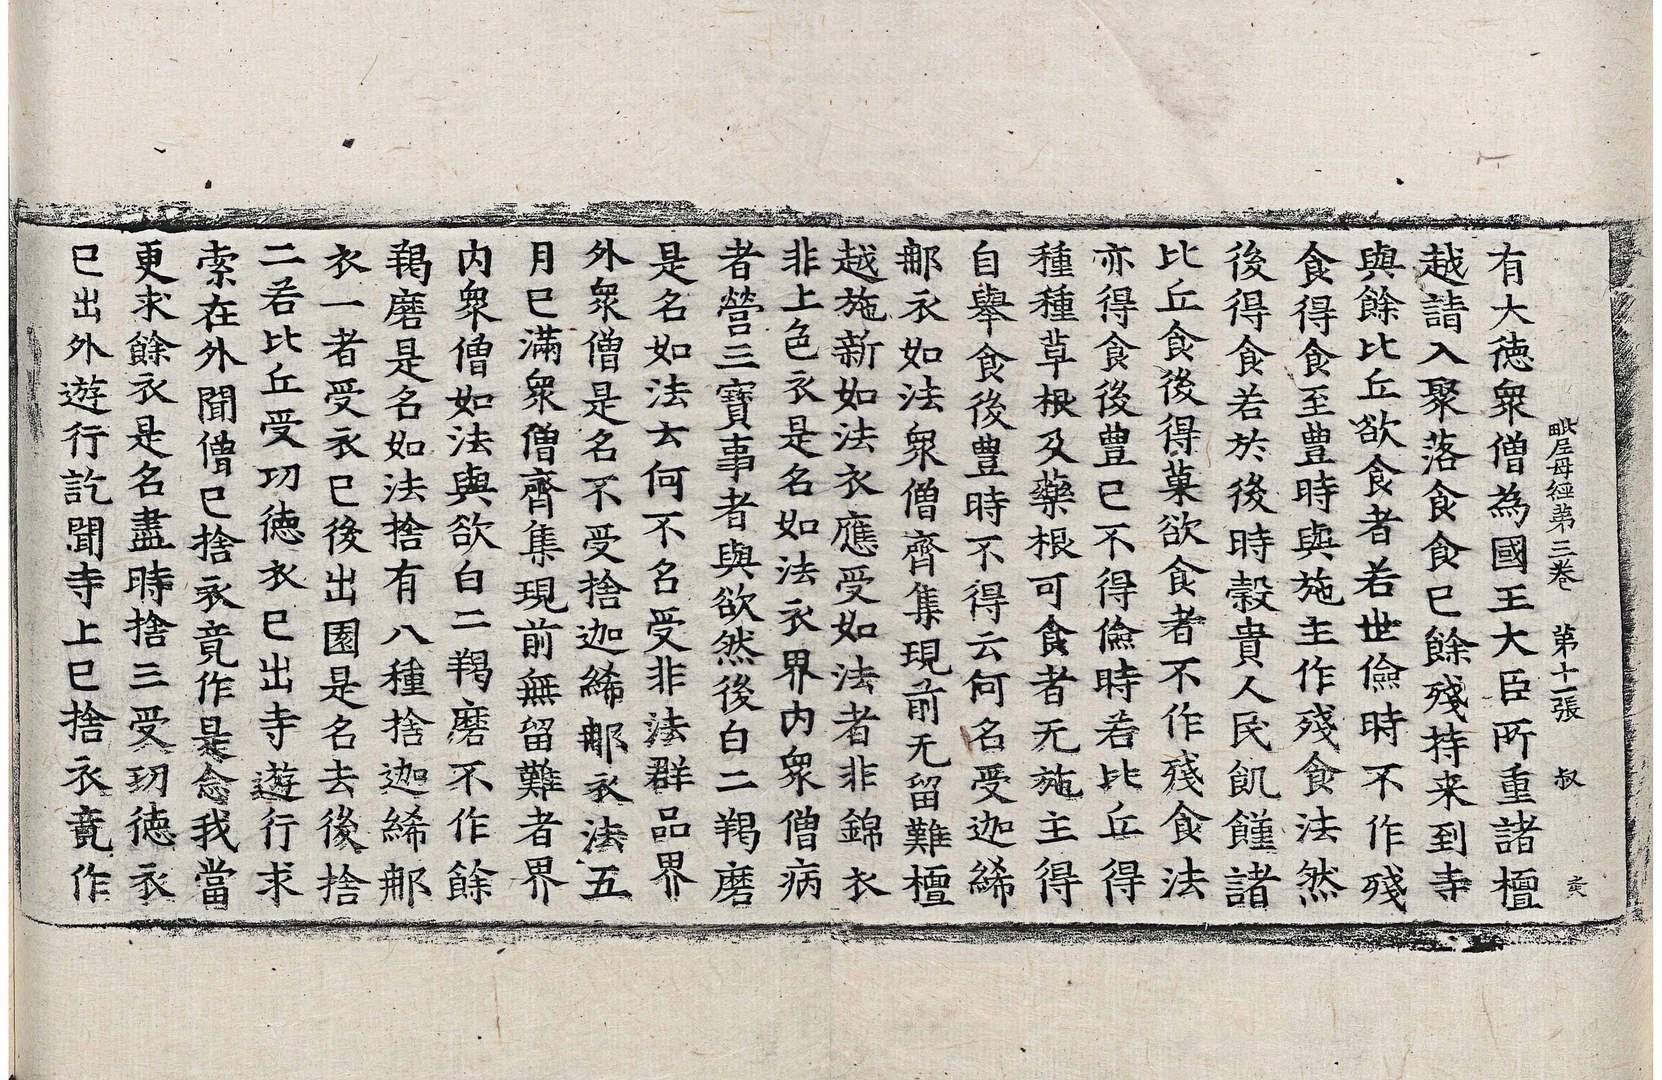 毗尼母經第三卷 第十一張 叔 寅
有大德衆僧為國王大臣所重諸檀
越請入聚落食食巳餘殘持来到寺
與餘比丘欲食者若世儉時不作殘
食得食至豊時與施主作殘食法然
後得食若於後時穀貴人民飢饉諸
比丘食後得菓欲食者不作殘食法
亦得食後豊巳不得儉時若比丘得
種種草根及藥根可食者无施主得
自舉食後豊時不得云何名受迦絺
那衣如法衆僧齊集現前无留難檀
越施新如法衣應受如法者非錦衣
非上色衣是名如法衣界内衆僧病
者營三寶事者與欲然後白二羯磨
是名如法云何不名受非法群品界
外衆僧是名不受捨迦絺那衣法五
月巳滿衆僧齊集現前無留難者界
内衆僧如法與欲白二羯磨不作餘
羯磨是名如法捨有八種捨迦絺那
衣一者受衣巳後出園是名去後捨
二若比丘受功德衣巳出寺遊行求
索在外聞僧巳捨衣竟作是念我當
更求餘衣是名盡時捨三受功德衣
巳出外遊行訖聞寺上巳捨衣竟作